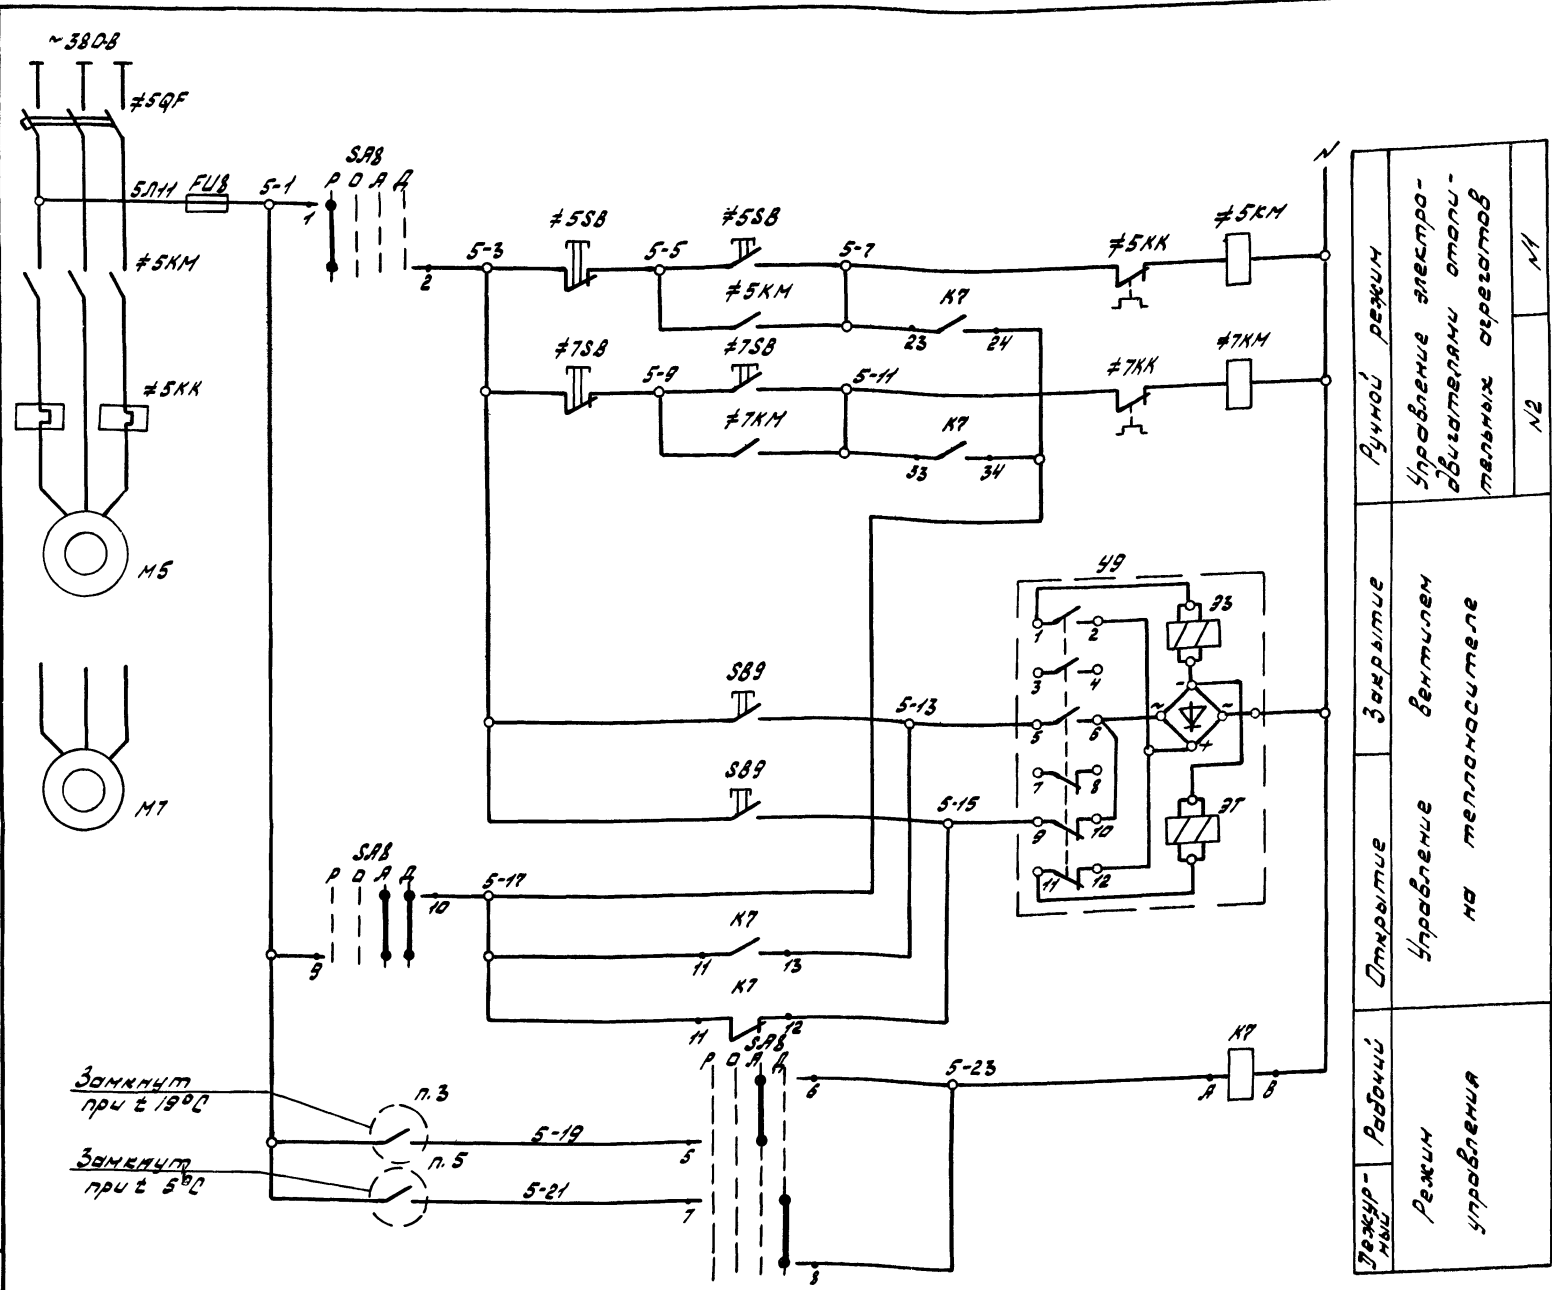 ~380В
≠5QF
5Л11
FU8
5-1
1
SA8
Р О А Д
2
≠5КМ
≠5КК
М5
М7
5-3
≠5SB
5-5
≠5SB
5-7
≠5КК
≠5КМ
N
≠5КМ
К7
23
24
≠7SB
5-9
≠7SB
5-11
≠7КК
≠7КМ
≠7КМ
К7
33
34
У9
ЭЗ
1
2
3
4
SB9
5-13
5
6
~
-
~
+
7
8
SB9
5-15
9
10
ЭТ
11
12
SA8
Р О А Д
10
5-17
9
К7
11
13
К7
11
12
SA8
Р О А Д
6
5-23
А
К7
В
Замкнут
при t 19°С
п.3
5-19
5
Замкнут
при t 5°С
п.5
5-21
7
8
Ручной режим
Управление электро-
двигателями отопи-
тельных агрегатов
N1
N2
Закрытие
Открытие
Управление вентилем
на теплоносителе
Рабочий
Дежур-
ный
Режим
управления